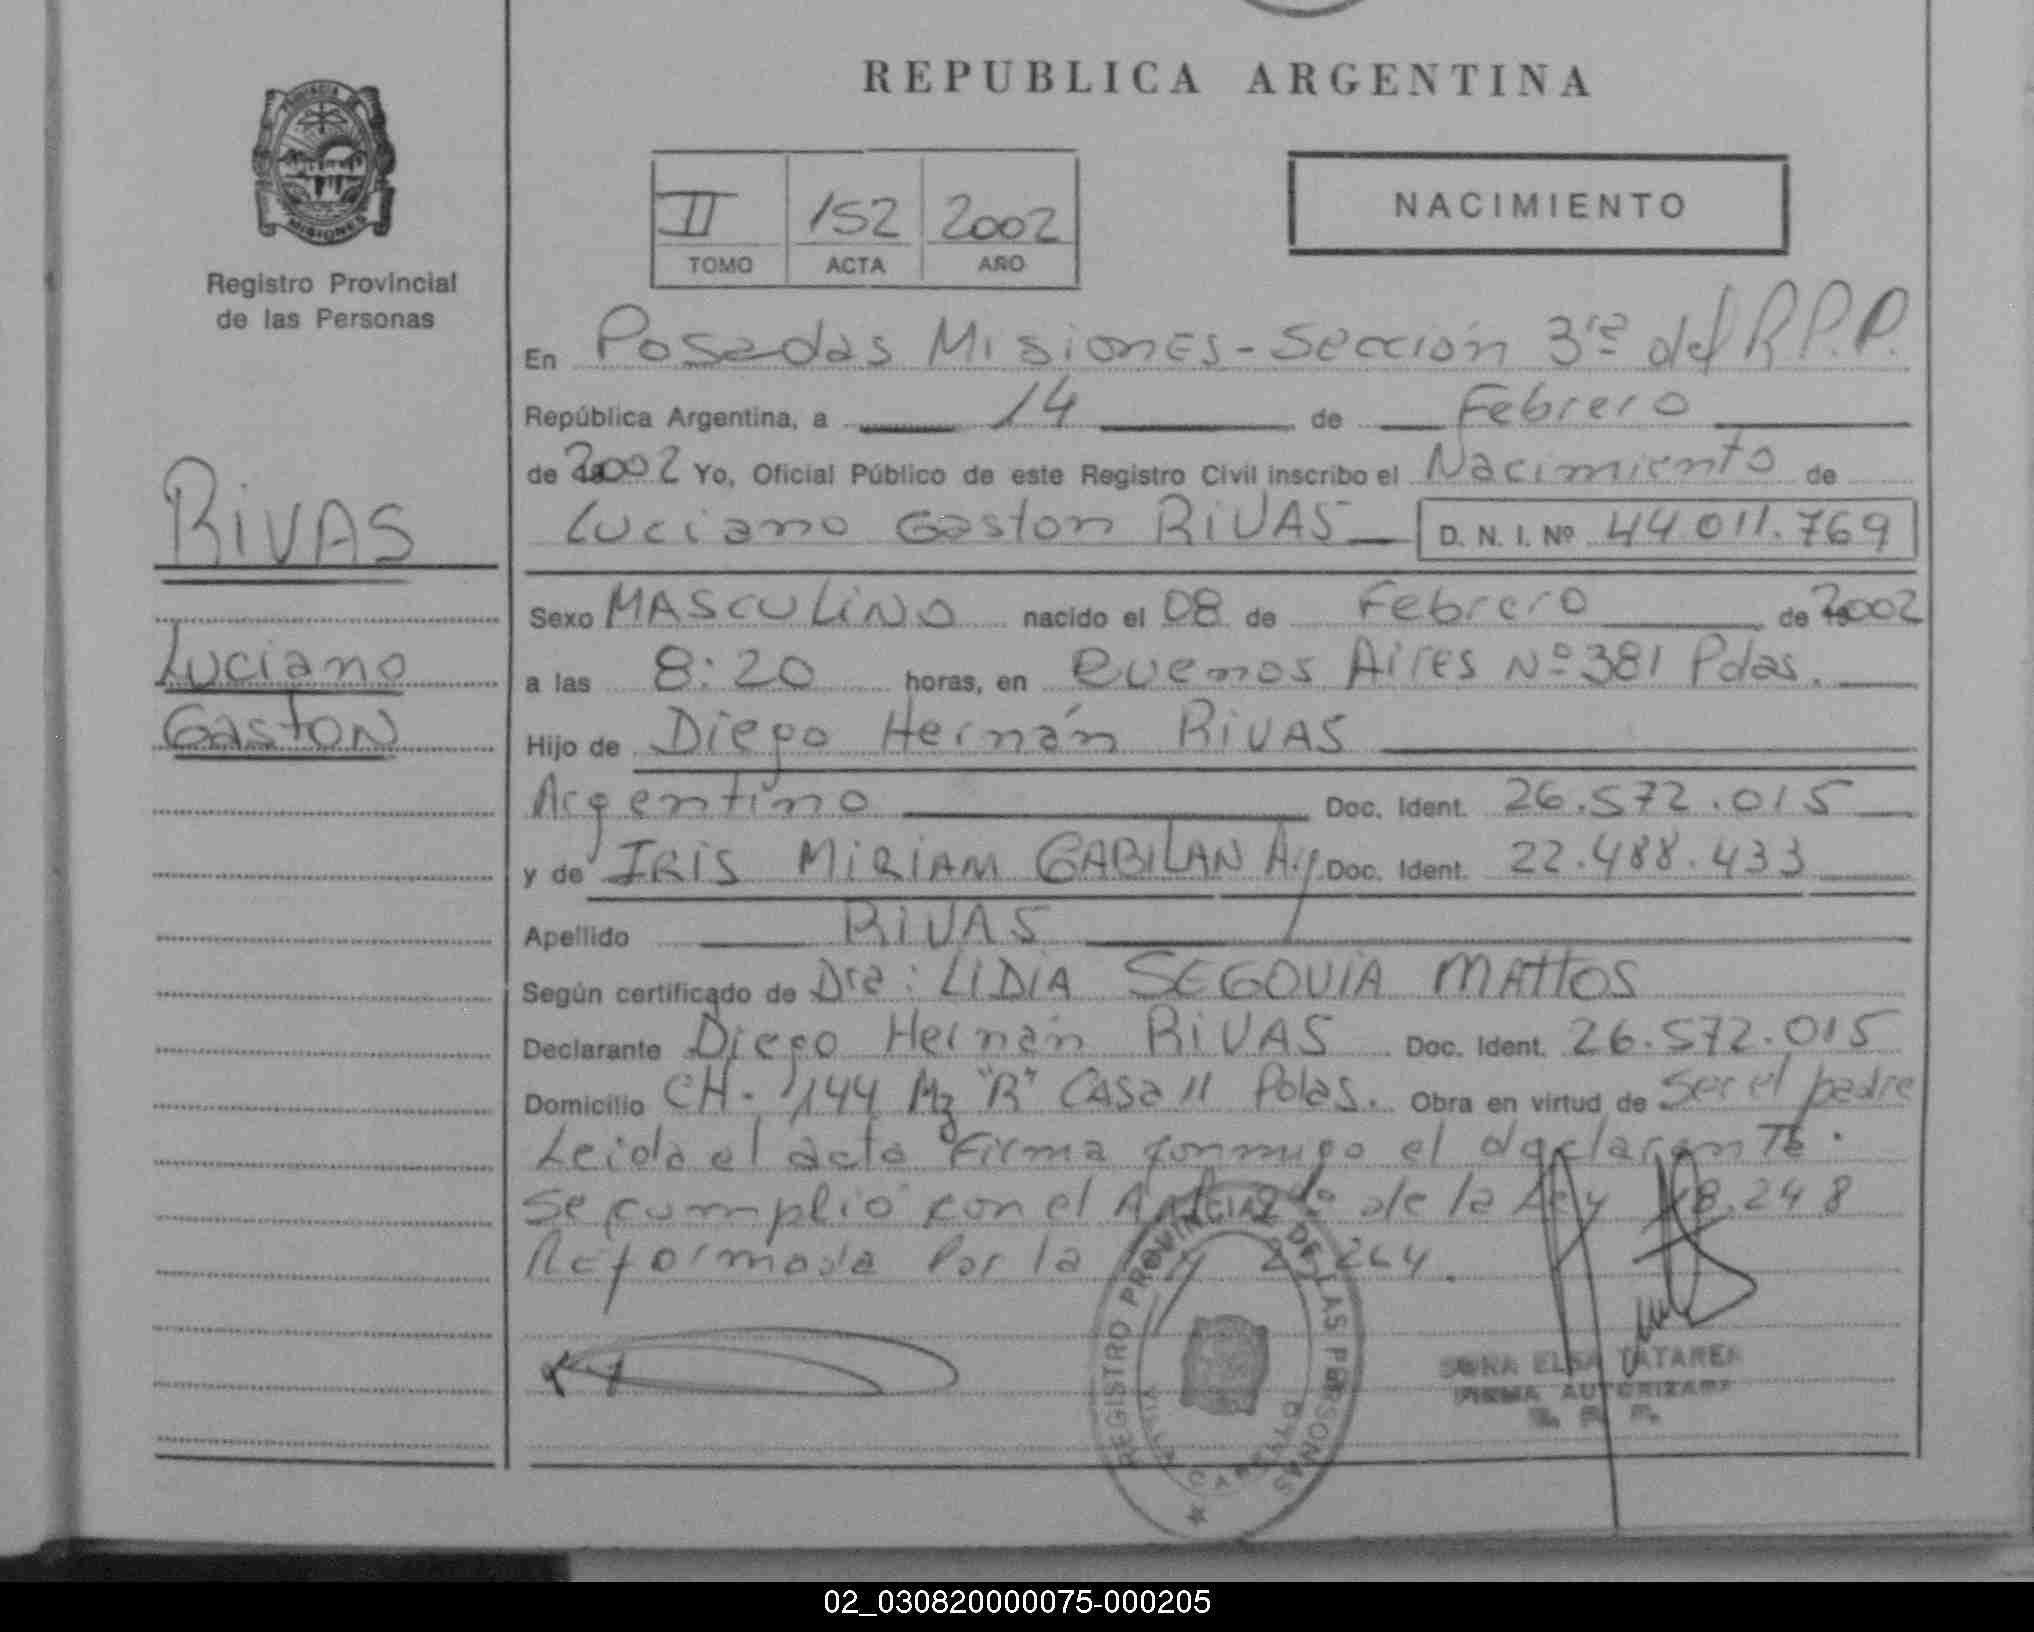 PROVINCIA DE
MISIONES
Registro Provincial
de las Personas
RIVAS
Luciano
Gaston
REPUBLICA ARGENTINA
II 152 2002
TOMO ACTA AÑO
NACIMIENTO
En Posadas Misiones - Sección 3ra del R.P.P.
República Argentina, a 14 de Febrero
de 2002 Yo, Oficial Público de este Registro Civil inscribo el Nacimiento de
Luciano Gaston RIVAS D. N. I. Nº 44.011.769
Sexo MASCULINO nacido el 08 de Febrero de 2002
a las 8:20 horas, en Buenos Aires Nº 381 Pdas.
Hijo de Diego Hernán RIVAS
Argentino Doc. Ident. 26.572.015
y de IRIS MIRIAM GABILAN Arg Doc. Ident. 22.488.433
Apellido RIVAS
Según certificado de Dra: LIDIA SEGOVIA MATTOS
Declarante Diego Hernán RIVAS Doc. Ident. 26.572.015
Domicilio CH. 144 Mz "R" CASA 11 Pdas. Obra en virtud de Ser el padre
Leida el acta Firma conmigo el declarante.
Se cumplio con el de la Ley 18.248
Reformada Por la Ley 23.264.
REGISTRO PROVINCIAL DE LAS PERSONAS
ELSA
FIRMA AUTORIZADA
R. P. P.
02_030820000075-000205